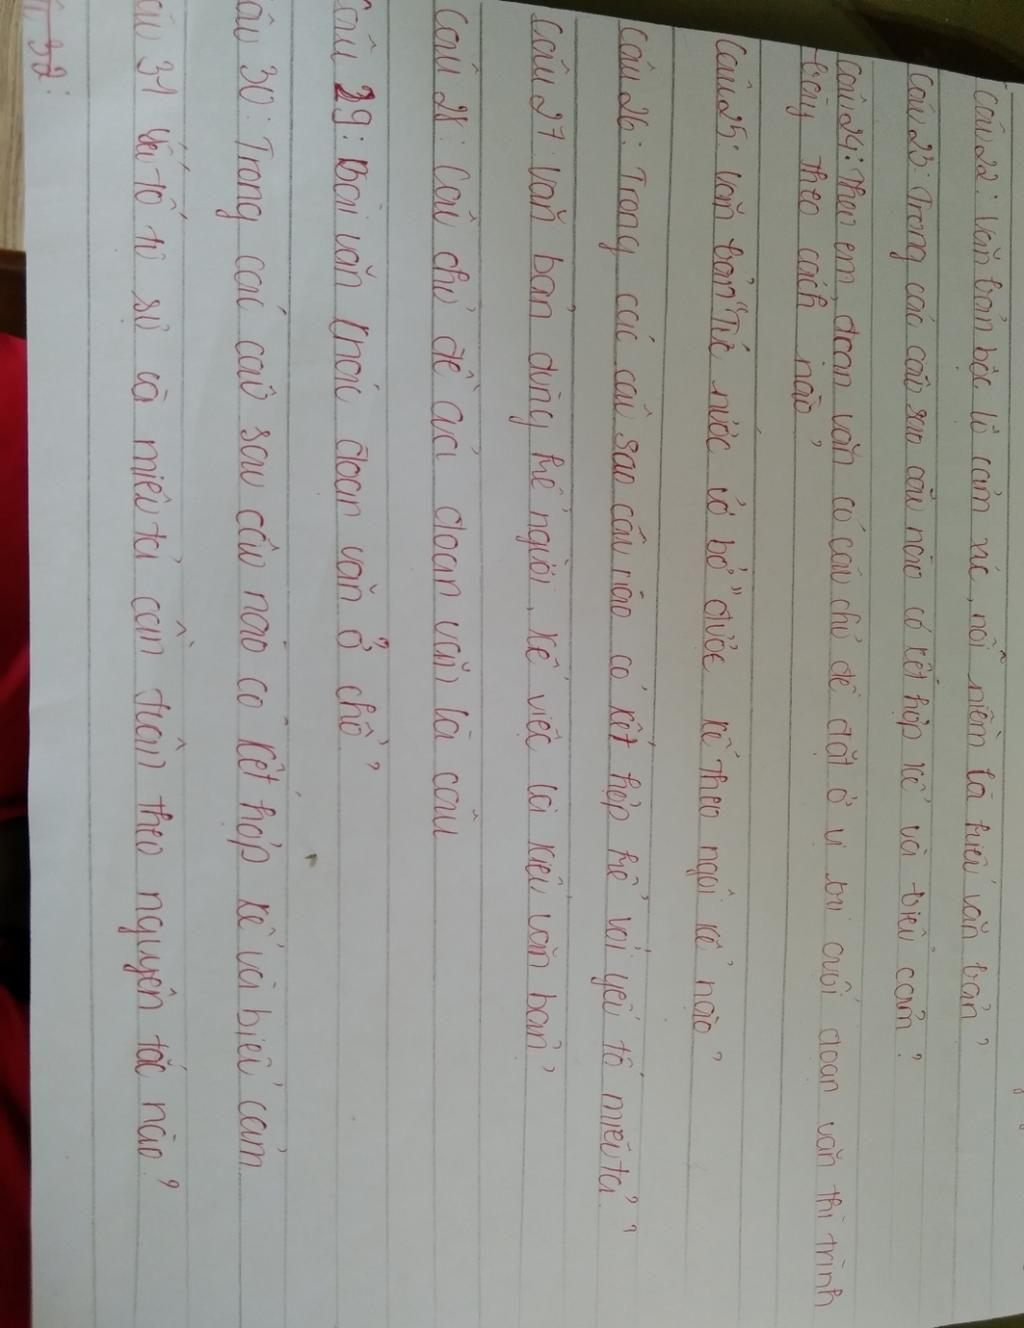 Câu 22: Văn bản bộc lộ cảm xúc, nỗi niềm là kiểu văn bản?
Câu 23: Trong các câu sao câu nào có kết hợp kể và biểu cảm?
Câu 24: Theo em, đoạn văn có câu chủ đề đặt ở vị trí cuối đoạn văn thì trình
bày theo cách nào?
Câu 25: Văn bản "Tức nước vỡ bờ" được kể theo ngôi kể nào?
Câu 26: Trong các câu sao câu nào có kết hợp kể với yếu tố miêu tả?
Câu 27: Văn bản dùng kể người, kể việc là kiểu văn bản?
Câu 28: Câu chủ đề của đoạn văn là câu
Câu 29: Bài văn khác đoạn văn ở chỗ?
Câu 30: Trong các câu sau câu nào có kết hợp kể và biểu cảm
Câu 31 yếu tố tự sự và miêu tả cần tuân theo nguyên tắc nào?
32: